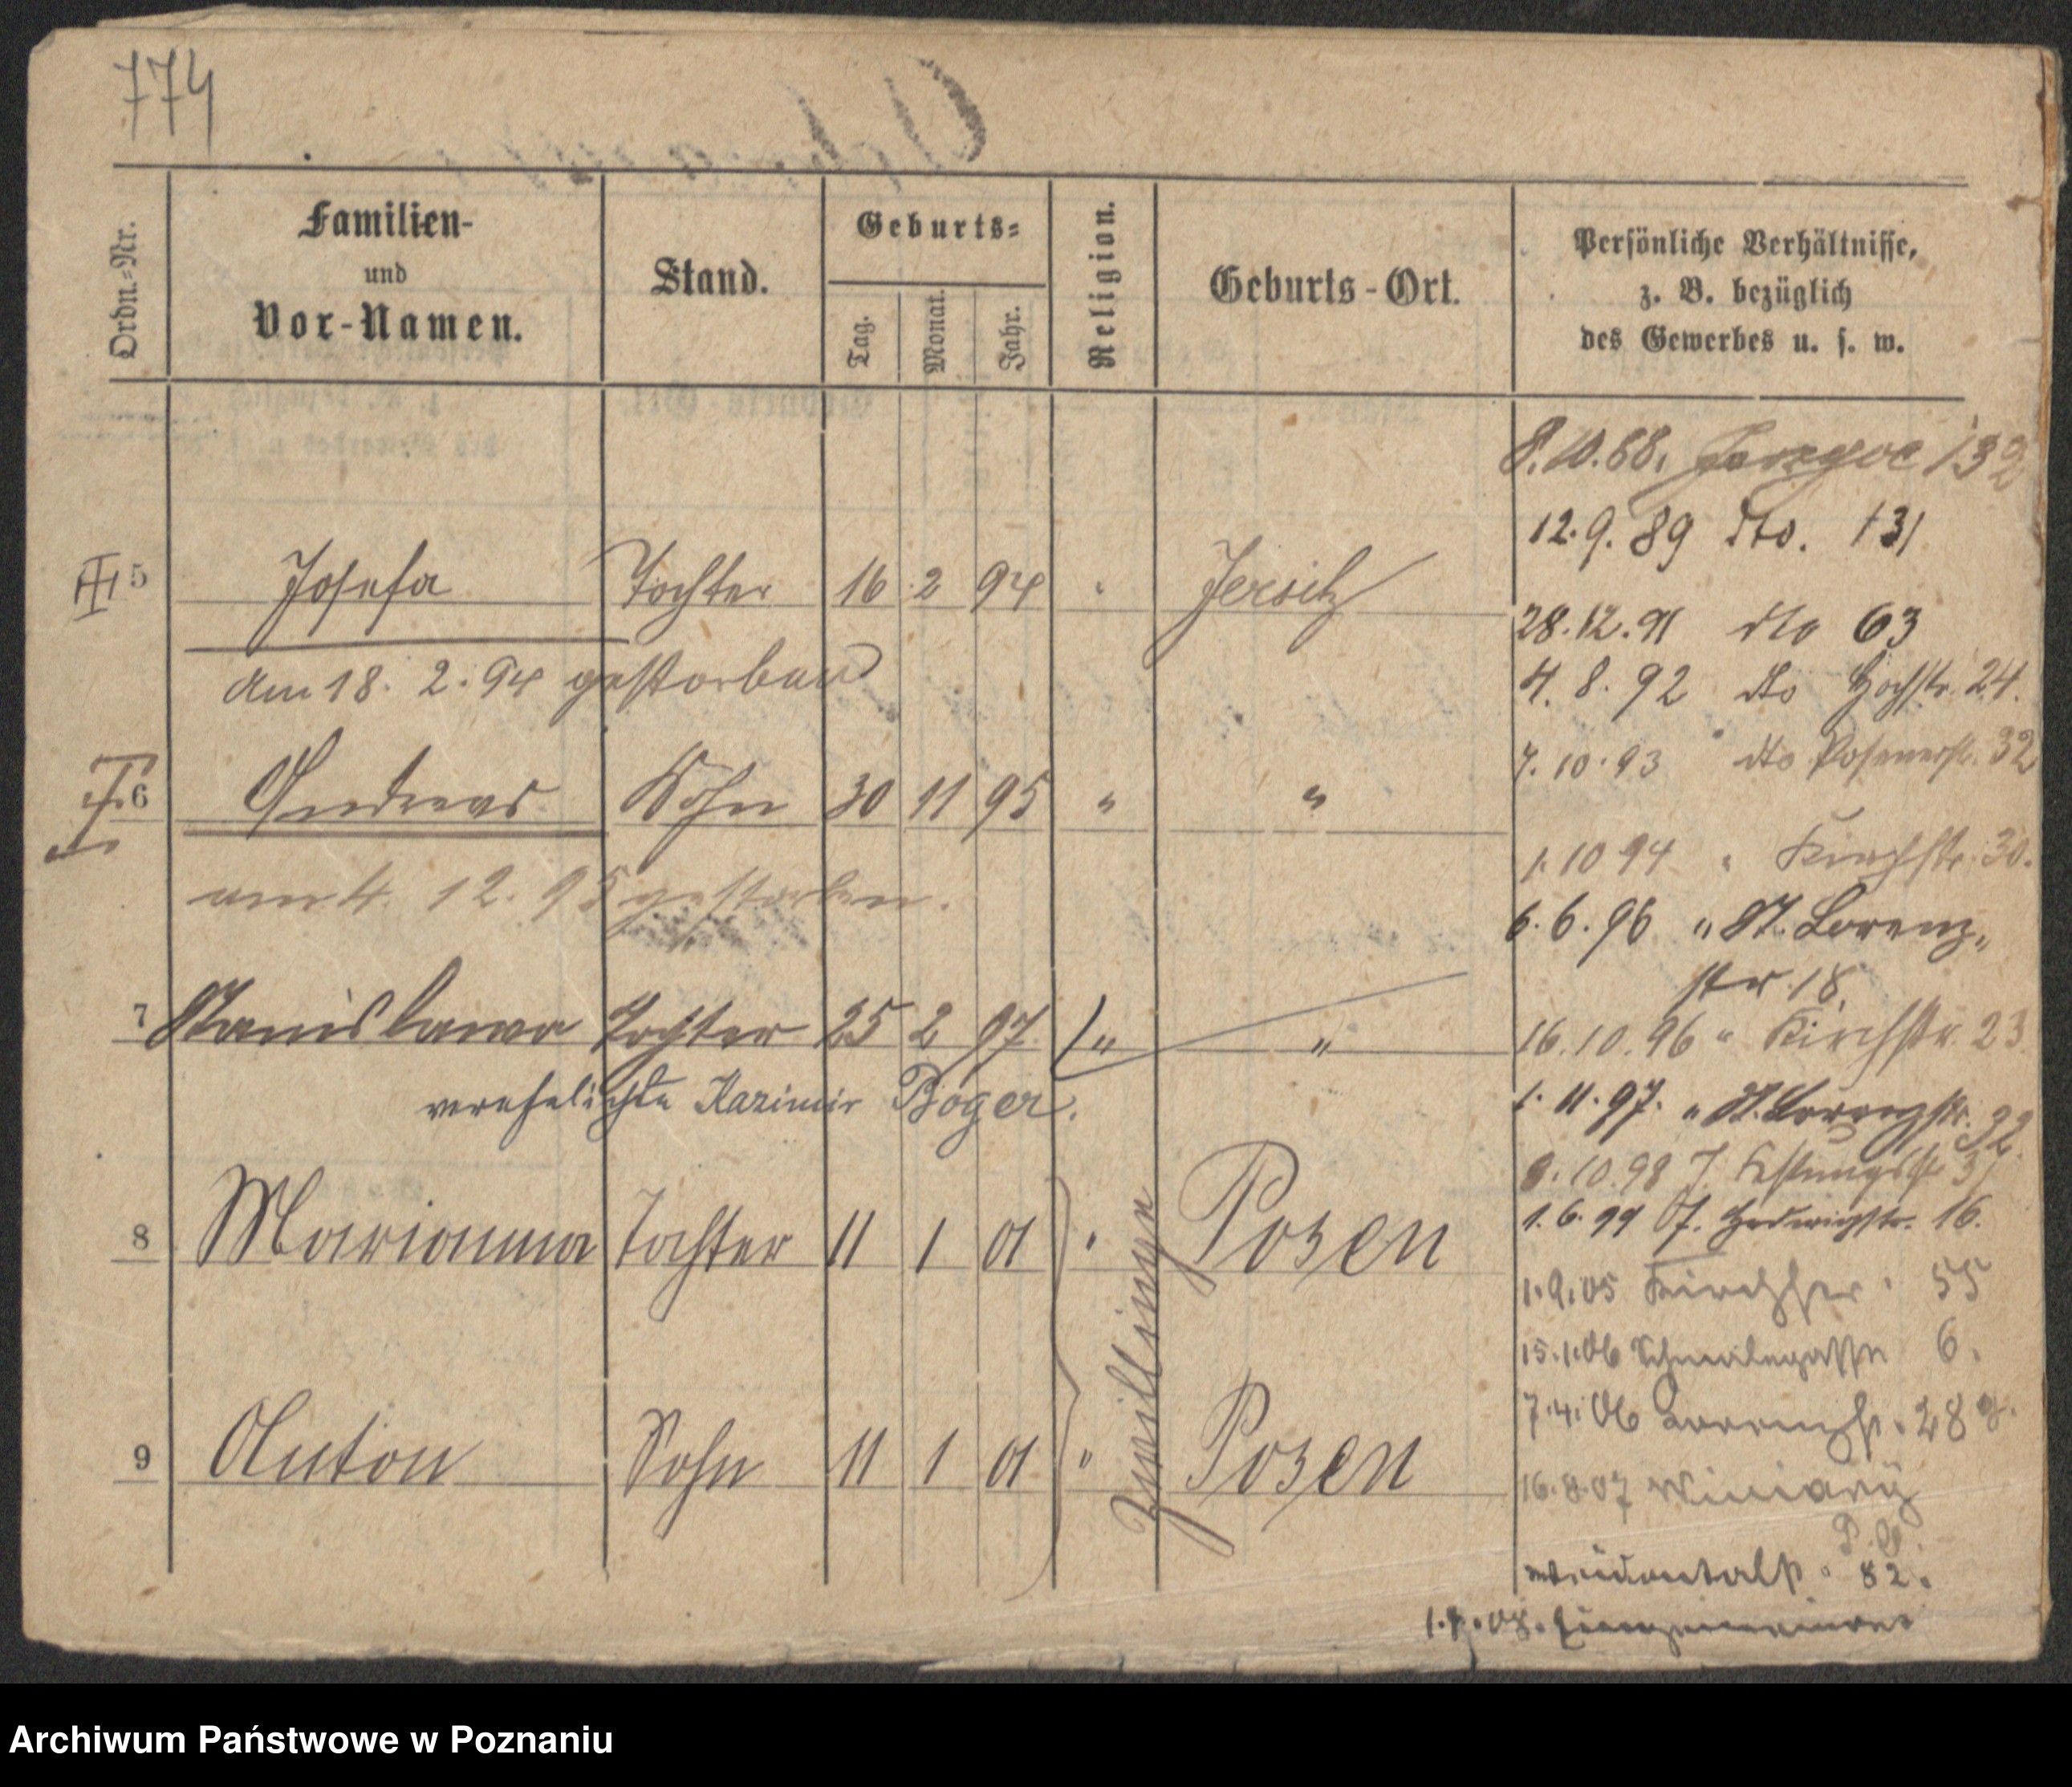 774
Ordn.-Nr.
Familien-
und
Vor-Namen.
Stand.
Geburts-
Tag.
Monat.
Jahr.
Religion.
Geburts-Ort.
Persönliche Verhältnisse,
z. B. bezüglich
des Gewerbes u. s. w.
8.10.88. 132
12.9.89 dto. 131
III 5 Josefa Tochter 16 2 94 " Jersitz
28.12.91 dto 63
am 18. 2. 94 gestorben
4. 8. 92 dto Hochstr. 24.
7.10.93 dto Posenerstr. 32
6 Andreas Sohn 30 11 95 " "
1.10 94 " Kirchstr. 30.
am 4. 12. 95 gestorben.
6.6.96 " St. Lorenz-
str. 18.
7 Stanislawa Tochter 25 2 97 " "
16.10.96 " Kirchstr. 23
verehelichte Kazimir Boger.
1.11.97. " St. Lorenzstr. 32.
10.98 J.
1.6.99 J. Hedwigstr. 16.
8 Marianna Tochter 11 1 01 " Posen
Zwillinge
1.9.05 55
15.1.06 6.
7.4.06 Lorenzstr. 28
9 Anton Sohn 11 1 01 " Posen
16.8.07 Winiary
P. B.
82.
Archiwum Państwowe w Poznaniu